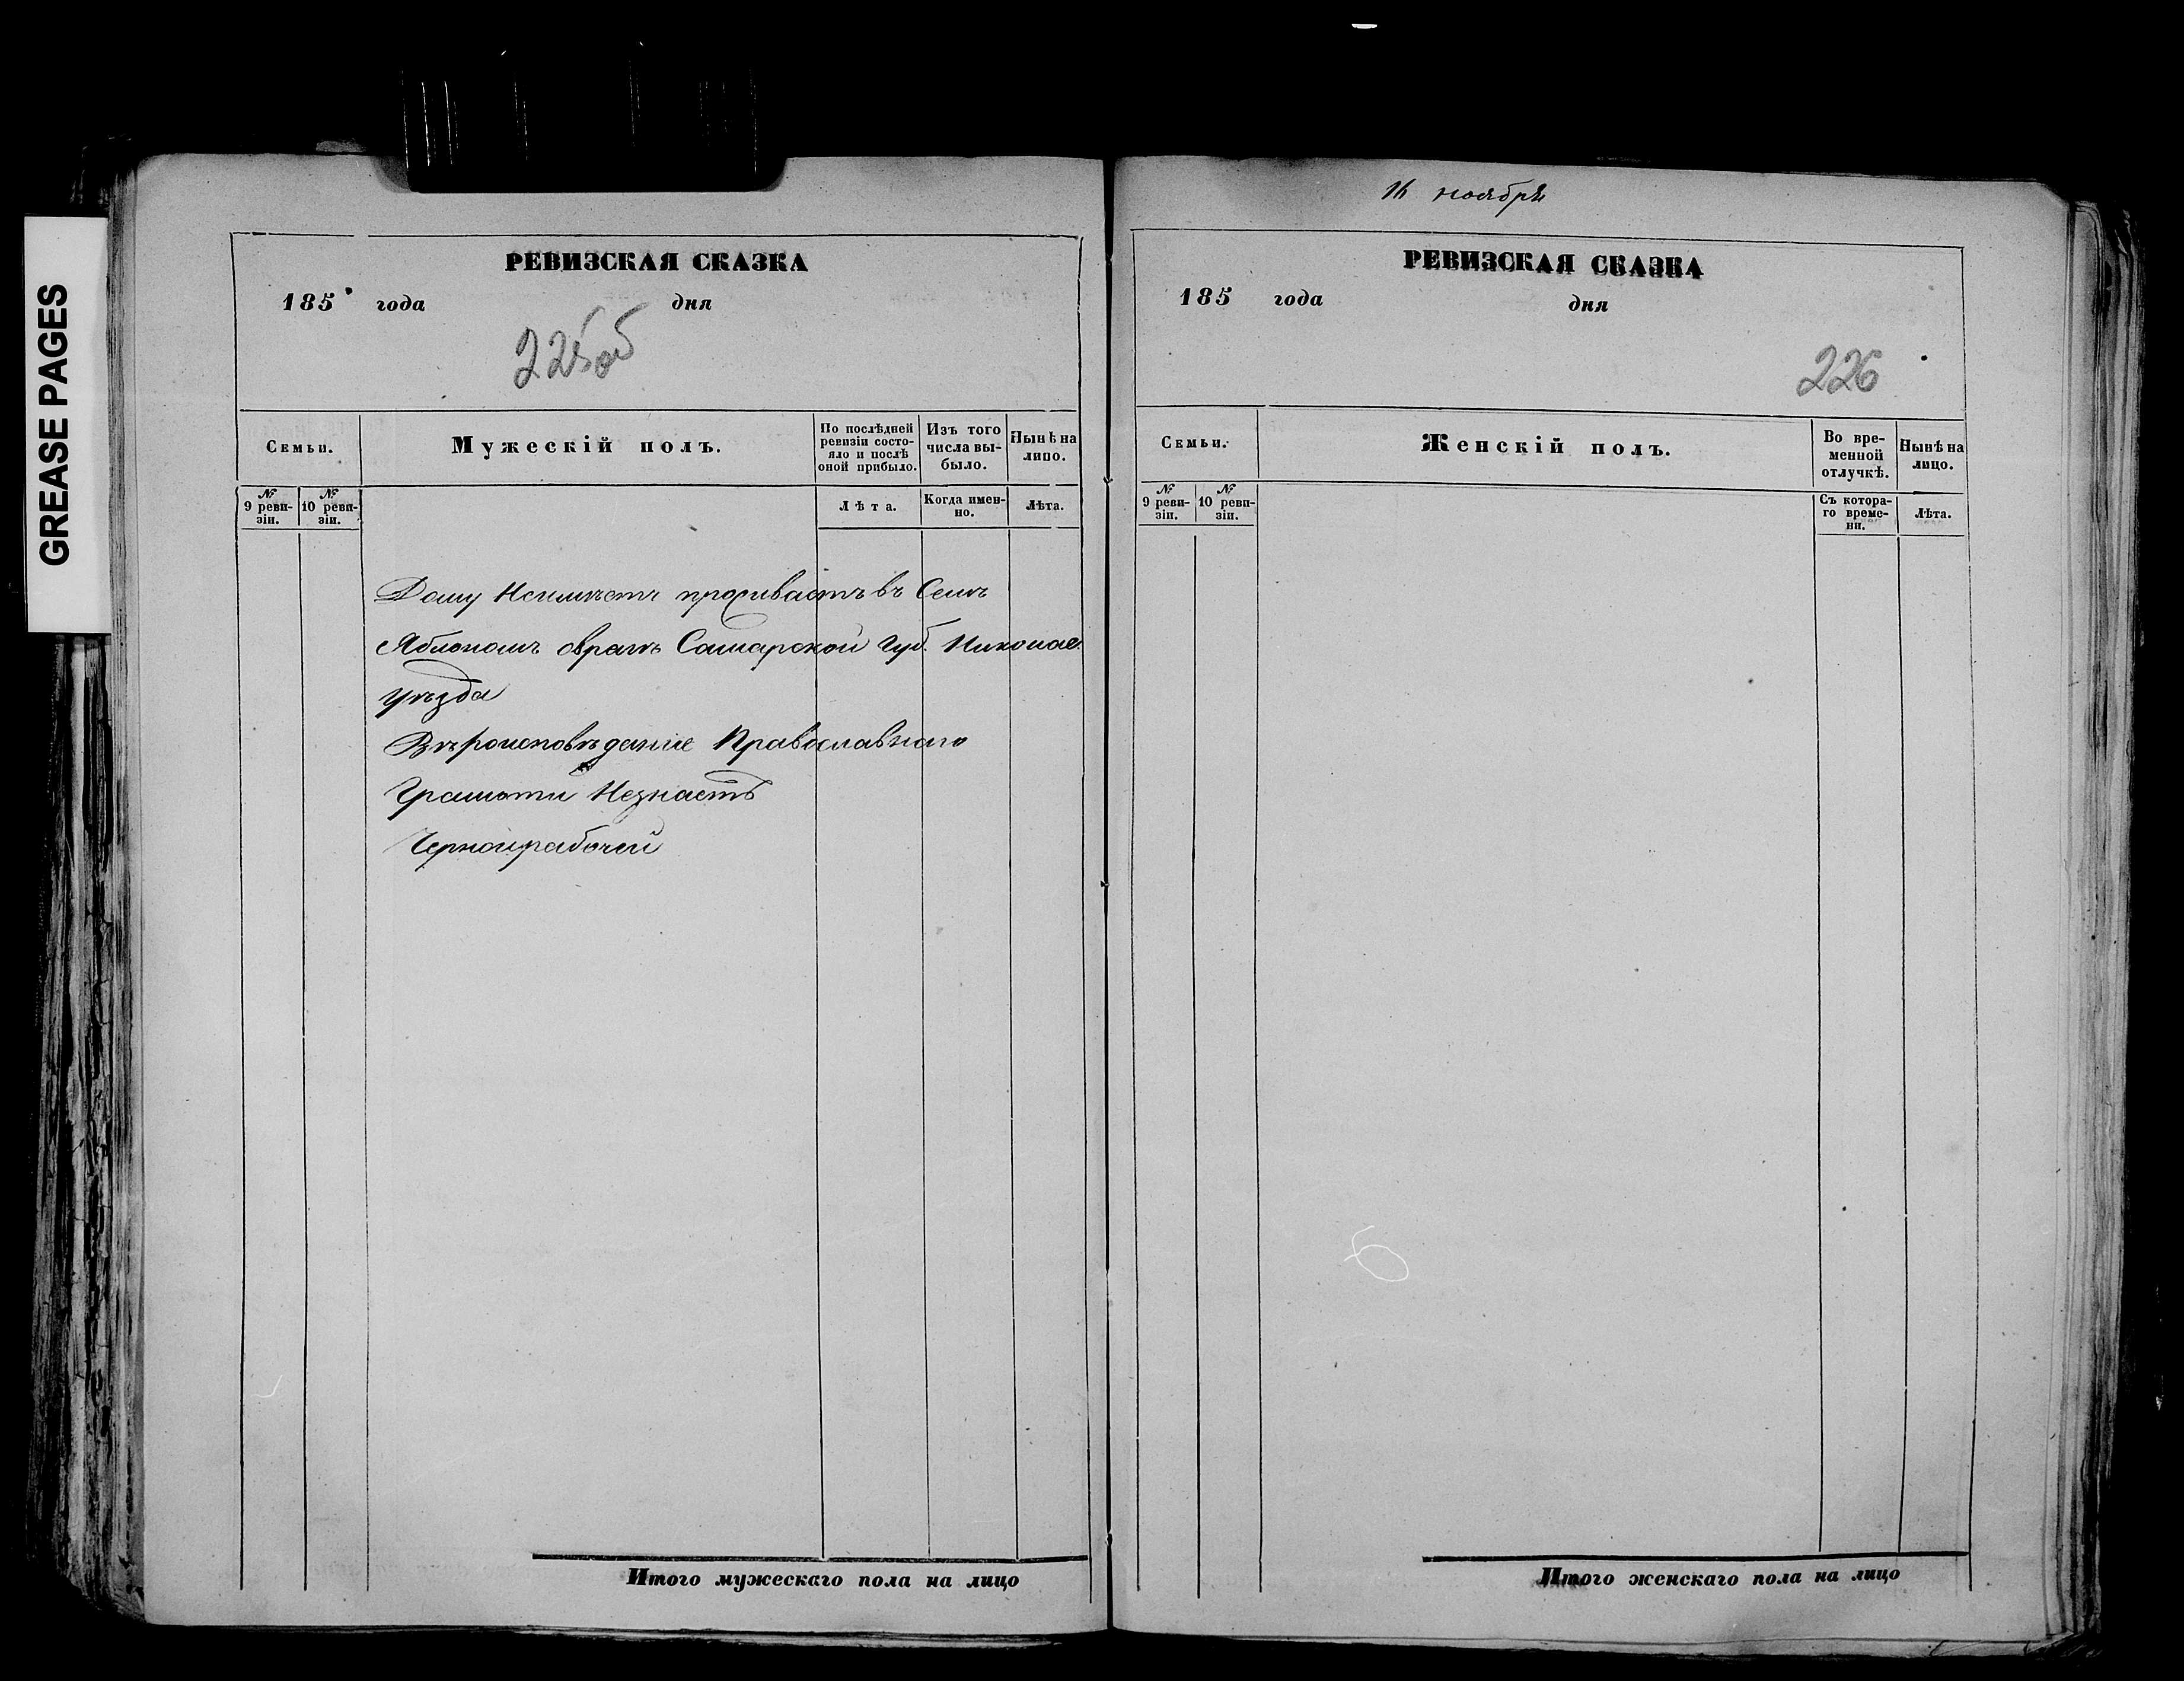 GREASE PAGES
РЕВИЗСКАЯ СКАЗКА
185 года дня
225об
Семьи.
Мужескій полъ.
По послѣдней ревизіи состояло и послѣ оной прибыло.
Изъ того числа выбыло.
Нынѣ на лицо.
№ 9 ревизіи.
№ 10 ревизіи.
Лѣта.
Когда именно.
Лѣта.
Дому Неимѣетъ проживаетъ въ Селѣ
Яблономъ овраге Самарской Губ. Николае.
уѣзда
Вѣроисповѣдание Православнаго
Грамоти Незнаетъ
Чернойрабочей
Итого мужескаго пола на лицо
16 ноября
РЕВИЗСКАЯ СКАЗКА
185 года дня
226
Семьи.
Женскій полъ.
Во временной отлучкѣ.
Нынѣ на лицо.
№ 9 ревизіи.
№ 10 ревизіи.
Съ котораго времени.
Лѣта.
Итого женскаго пола на лицо